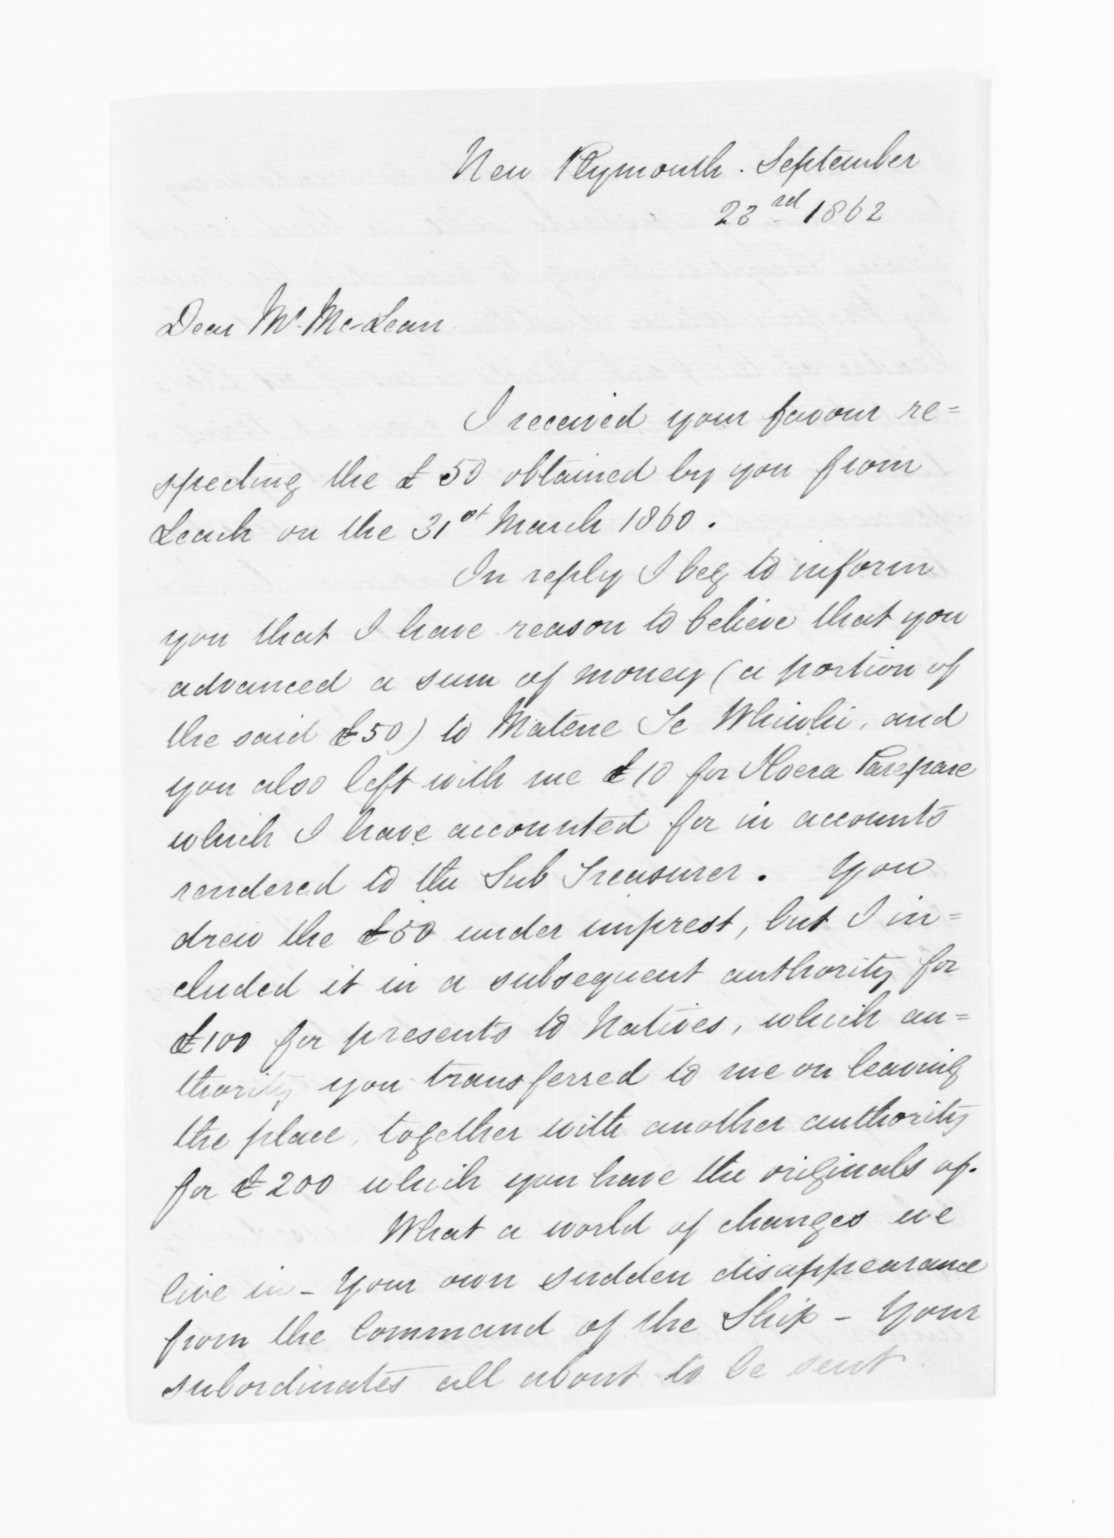 New Plymouth. September
23rd 1862
Dear Mr. McLean
I received your favour re=
specting the £50 obtained by you from
Leach on the 31st March 1860.
In reply I beg to inform
you that I have reason to believe that you
advanced a sum of money (a portion of
the said £50) to Matene Te Whiwhi, and
you also left with me £10 for Hoera Parepare
which I have accounted for in accounts
rendered to the Sub Treasurer. You
drew the £50 under imprest, but I in=
cluded it in a subsequent authority for
£100 for presents to Natives, which au=
thority you transferred to me on leaving
the place, together with another authority
for £200 which you have the originals of.
What a world of changes we
live in - Your own sudden disappearance
from the Command of the Ship - Your
subordinates all about to be sent